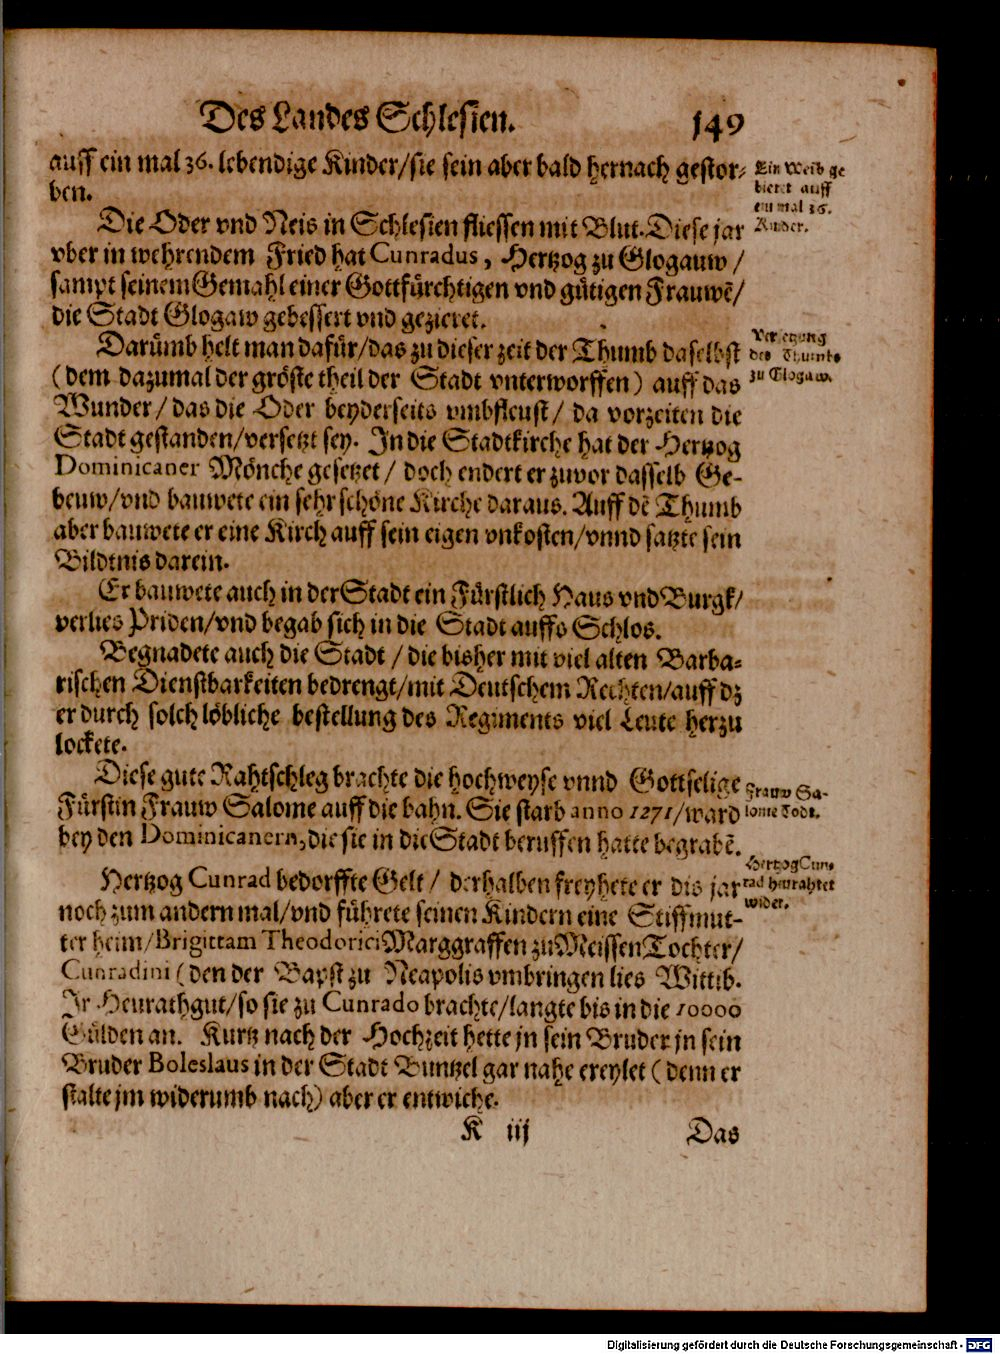 Des Landes Schlesien. 149
auff ein mal 36. lebendige Kinder/sie sein aber bald hernach gestor-
ben.
Ein Weib ge
bieret auff
ein mal 36.
Kinder.
Die Oder vnd Neis in Schlesien fliessen mit Blut. Diese jar
vber in wehrendem Fried hat Cunradus, Hertzog zu Glogauw /
sampt seinem Gemahl einer Gottfürchtigen vnd gütigen Frauwẽ/
die Stadt Glogaw gebessert vnd gezieret.
Darümb helt man dafür/das zu dieser zeit der Thumb daselbst
(dem dazumal der gröste theil der Stadt vnterworffen) auff das
Wunder / das die Oder beyderseits vmbfleust / da vorzeiten die
Stadt gestanden/versetzt sey. In die Stadtkirche hat der Hertzog
Dominicaner Mönche gesetzet / doch endert er zuvor dasselb Ge-
beuw/vnd bauwete ein sehr schöne Kirche daraus. Auff dẽ Thumb
aber bauwete er eine Kirch auff sein eigen vnkosten/vnnd satzte sein
Bildtnis darein.
des Thumbs
zu Glogaw.
Er bauwete auch in der Stadt ein Fürstlich Haus vnd Burgk/
verlies Priden/vnd begab sich in die Stadt auffs Schlos.
Begnadete auch die Stadt / die bisher mit viel alten Barba-
rischen Dienstbarkeiten bedrengt/mit Deutschem Rechten/auff dz
er durch solch löbliche bestellung des Regiments viel Leute herzu
lockete.
Diese gute Rahtschleg brachte die hochweyse vnnd Gottselige
Fürstin Frauw Salome auff die bahn. Sie starb anno 1271/ward
bey den Dominicanern, die sie in die Stadt beruffen hatte begrabẽ.
Frauw Sa-
lome Todt.
Hertzog Cunrad bedorffte Gelt / derhalben freyhete er dis jar
noch zum andern mal/vnd führete seinen Kindern eine Stiffmut-
ter heim/Brigittam Theodorici Marggraffen zu Meissen Tochter/
Cunradini (den der Bapst zu Neapolis vmbringen lies Wittib.
Ir Heurathgut/so sie zu Cunrado brachte/langte bis in die 10000
Gülden an. Kurtz nach der Hochzeit hette jn sein Bruder jn sein
Bruder Boleslaus in der Stadt Buntzel gar nahe ereylet (denn er
stalte jm widerumb nach) aber er entwiche.
Hertzog Cun-
rad heurahtet
wider.
K iij Das
Digitalisierung gefördert durch die Deutsche Forschungsgemeinschaft - DFG